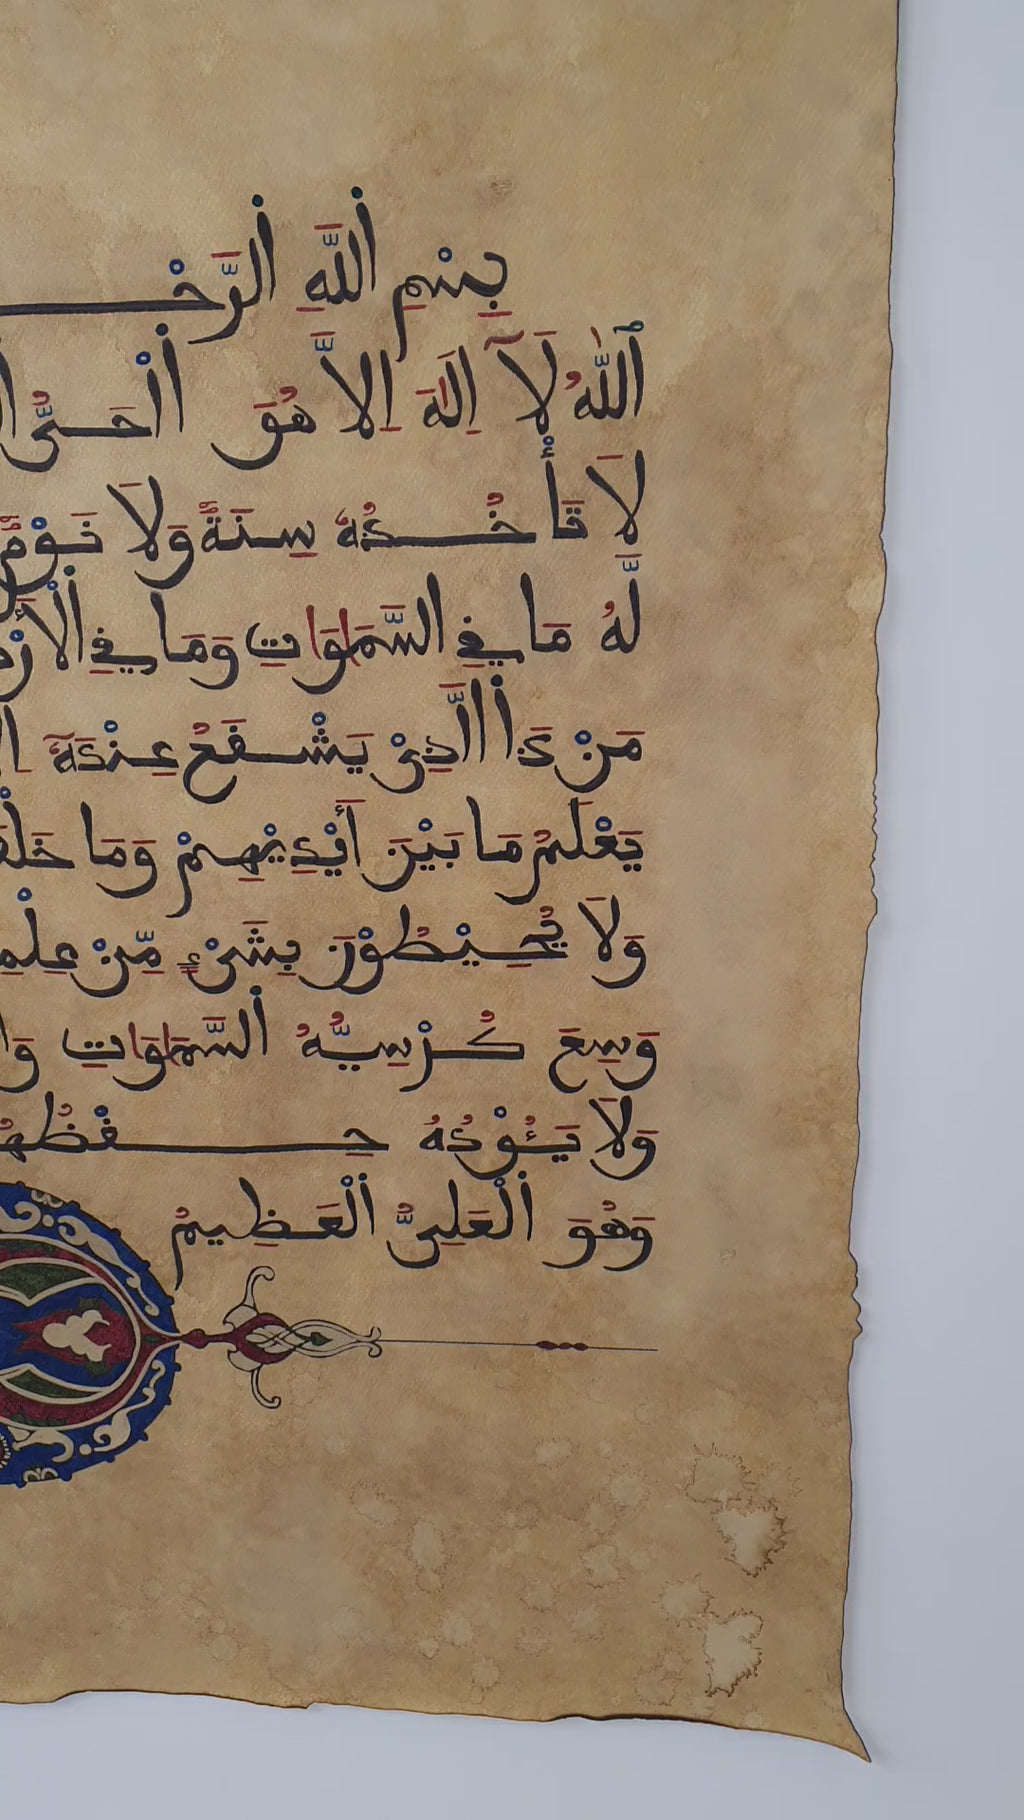 بِسْمِ ٱللَّهِ ٱلرَّحْـ
ٱللَّهُ لَآ اِلَهَ اِلَّا هُوَ ٱلْحَيُّ
لَا تَأْخُذُهُ سِنَةٌ وَلَا نَوْمٌ
لَّهُ مَا فِي السَّمَاوَاتِ وَمَا فِي ٱلْأَرْضِ
مَنْ ذَا ٱلَّذِيْ يَشْفَعُ عِنْدَهُٓ
يَعْلَمُ مَا بَيْنَ أَيْدِيْهِمْ وَمَا خَلْفَـ
وَلَا يُحِيْطُوْنَ بِشَيْءٍ مِّنْ عِلْمِـ
وَسِعَ كُرْسِيُّهُ ٱلسَّمَاوَاتِ وَا
وَلَا يَـُٔوْدُهُ حِفْظُهُـ
وَهُوَ ٱلْعَلِيُّ ٱلْعَظِيمُ